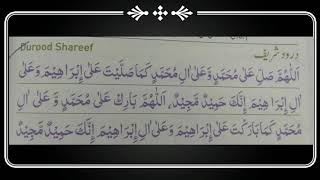 Durood Shareef
درود شریف
اَللّٰهُمَّ صَلِّ عَلٰی مُحَمَّدٍ وَّعَلٰٓی اٰلِ مُحَمَّدٍ كَمَا صَلَّیْتَ عَلٰٓی اِبْرَاهِیْمَ وَعَلٰٓی
اٰلِ اِبْرَاهِیْمَ اِنَّكَ حَمِیْدٌ مَّجِیْدٌ، اَللّٰهُمَّ بَارِكْ عَلٰی مُحَمَّدٍ وَّ عَلٰٓی اٰلِ
مُحَمَّدٍ كَمَا بَارَكْتَ عَلٰٓی اِبْرَاهِیْمَ وَعَلٰٓی اٰلِ اِبْرَاهِیْمَ اِنَّكَ حَمِیْدٌ مَّجِیْدٌ